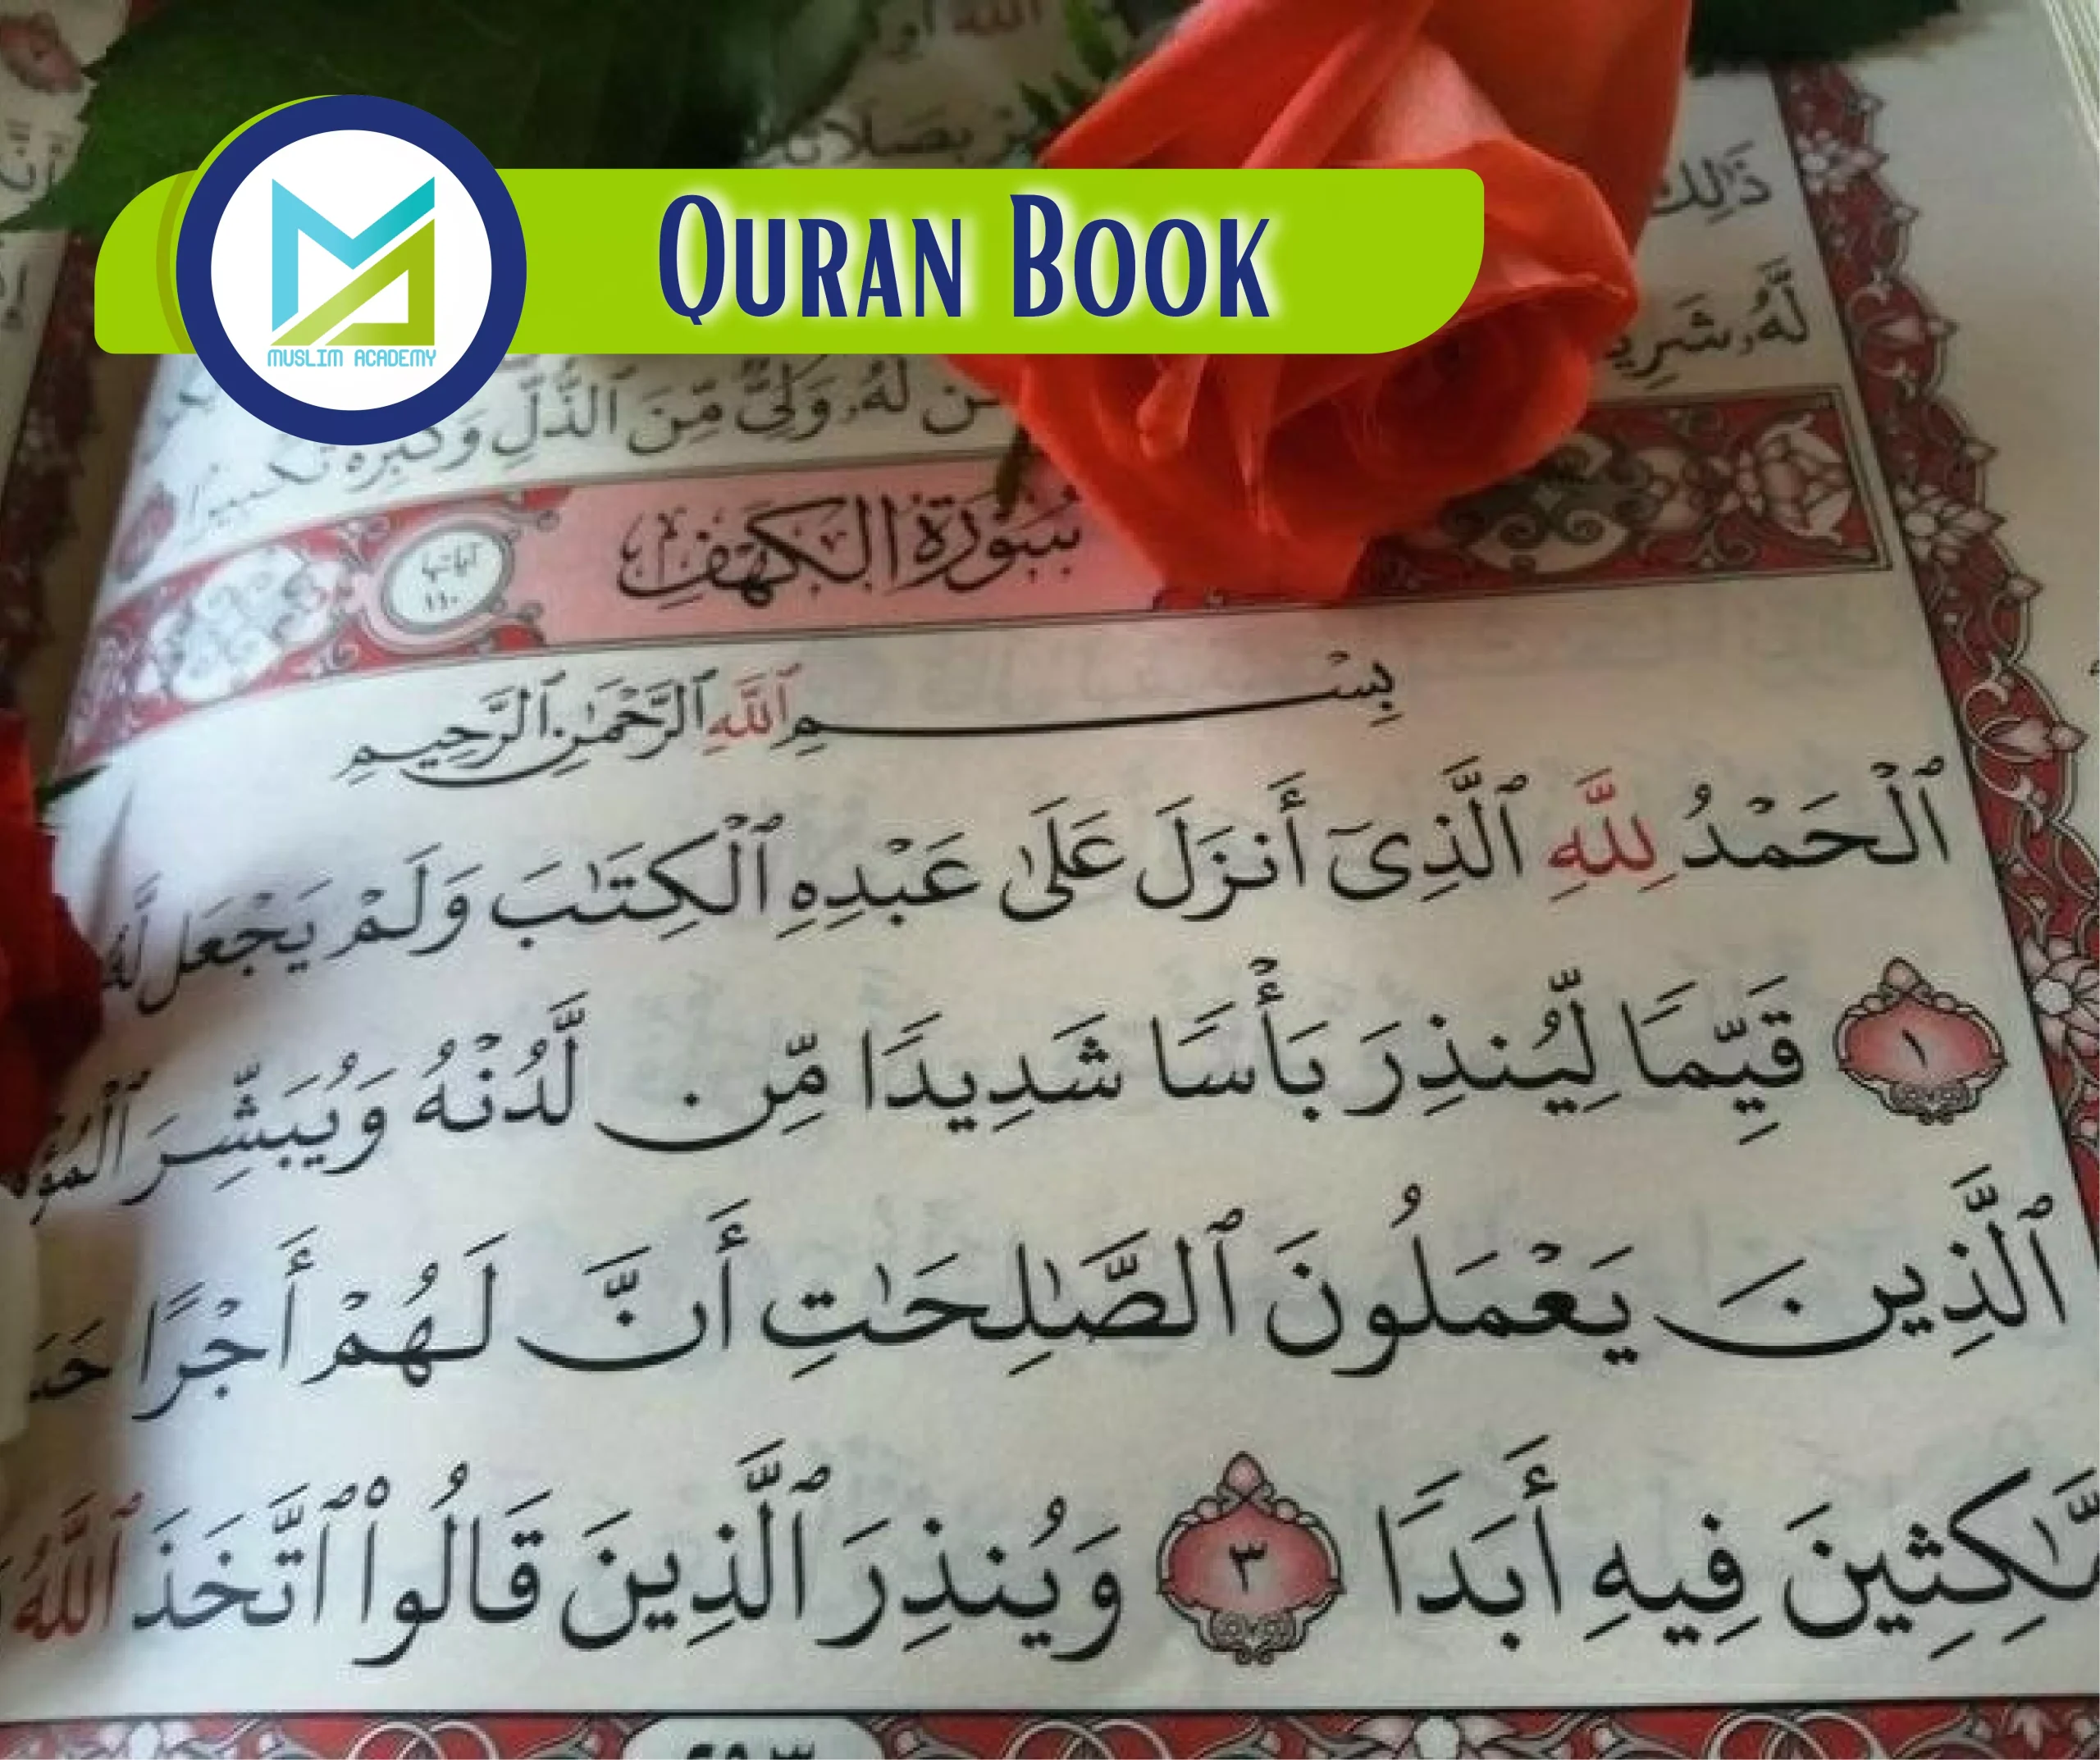 Quran Book
MUSLIM ACADEMY
ٱللَّه أو
بصلاتك
ذَٰلِكَ
لَّهُۥ شَرِيكٌ
لَّهُۥ وَلِىٌّ مِّنَ ٱلذُّلِّ وَكَبِّرْهُ تَكْبِيرًا
سُورَةُ الكَهْفِ
آياتها
١١٠
بِسْمِ ٱللَّهِ ٱلرَّحْمَٰنِ ٱلرَّحِيمِ
ٱلْحَمْدُ لِلَّهِ ٱلَّذِىٓ أَنزَلَ عَلَىٰ عَبْدِهِ ٱلْكِتَٰبَ وَلَمْ يَجْعَل لَّهُۥ
١ قَيِّمًا لِّيُنذِرَ بَأْسًا شَدِيدًا مِّن لَّدُنْهُ وَيُبَشِّرَ
ٱلَّذِينَ يَعْمَلُونَ ٱلصَّٰلِحَٰتِ أَنَّ لَهُمْ أَجْرًا
مَّٰكِثِينَ فِيهِ أَبَدًا ٣ وَيُنذِرَ ٱلَّذِينَ قَالُوا۟ ٱتَّخَذَ ٱللَّهُ
٢٩٣